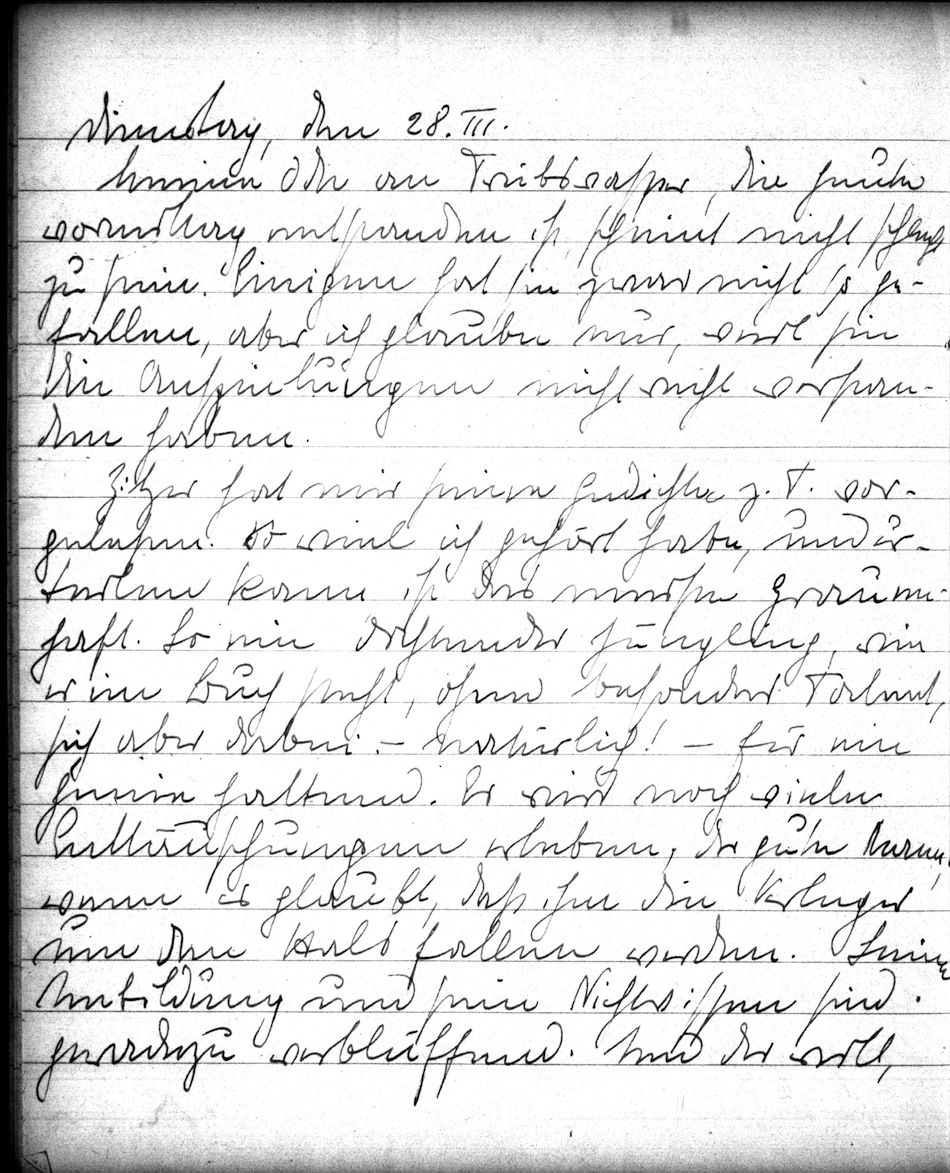 Dienstag, den 28. III.
Meine Ode an Treibwasser, die heute
vormittag entstanden ist, scheint nicht schlecht
zu sein. Einigen hat sie zwar nicht so ge-
fallen, aber ich glaube nur, weil sie
die Anspielungen nicht recht verstan-
den haben.
hat mir seine Gedichte z. T. vor-
gelesen. So viel ich gehört habe, und ur-
teilen kann ist das meiste grauen-
haft. So ein dichtender Jüngling, wie
er im Buch steht, ohne besonderes Talent,
sich aber dabei – natürlich! – für ein
Genie haltend. Er wird noch viele
Enttäuschungen erleben, der gute
wenn er glaubt, daß ihm die Verleger
um den Hals fallen werden. Seine
Unbildung und sein Nichtwissen sind
geradezu verblüffend. Und der will,